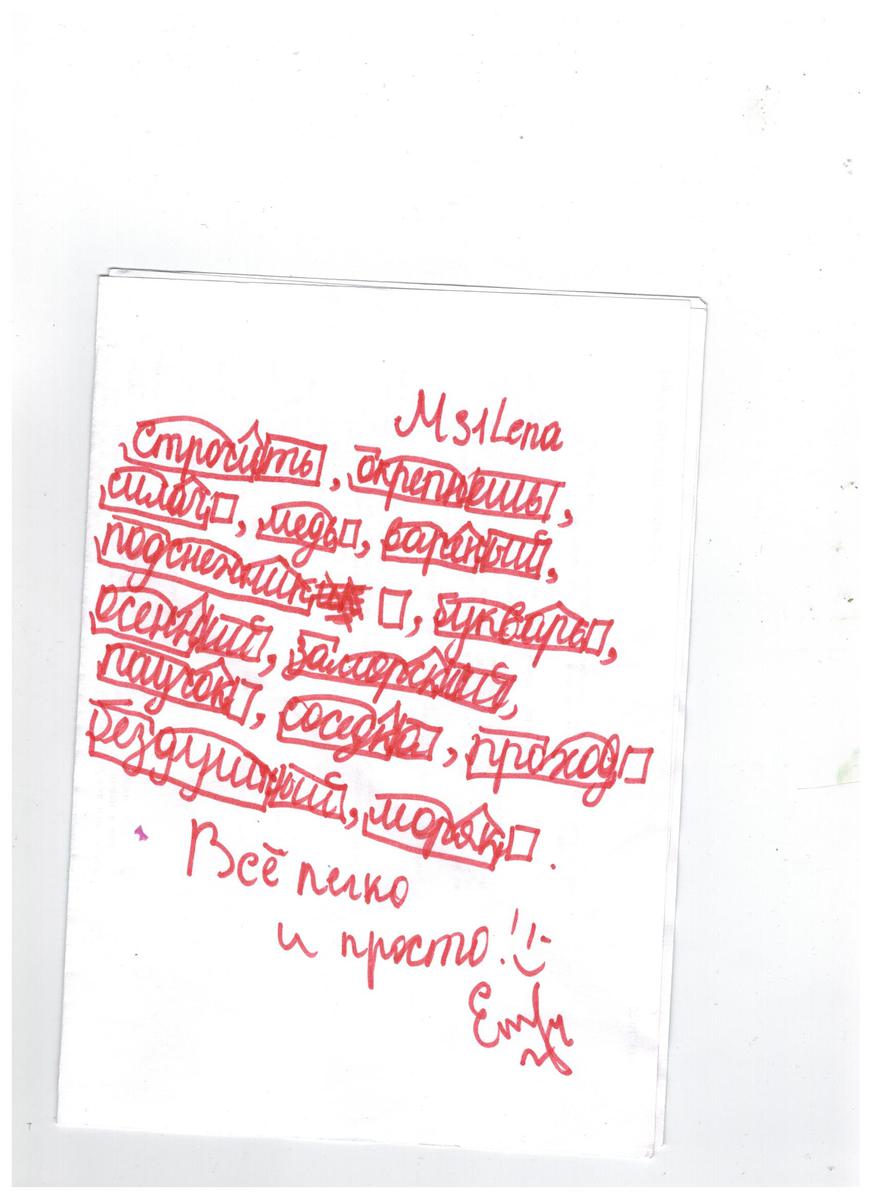 M31Lena
строчить, окрепнешь,
силач, медь, варёный,
подснежник, букварь,
осенний, заморский,
паучок, соседка, проход,
бездушный, моряк.
Всё легко
и просто!
Emily